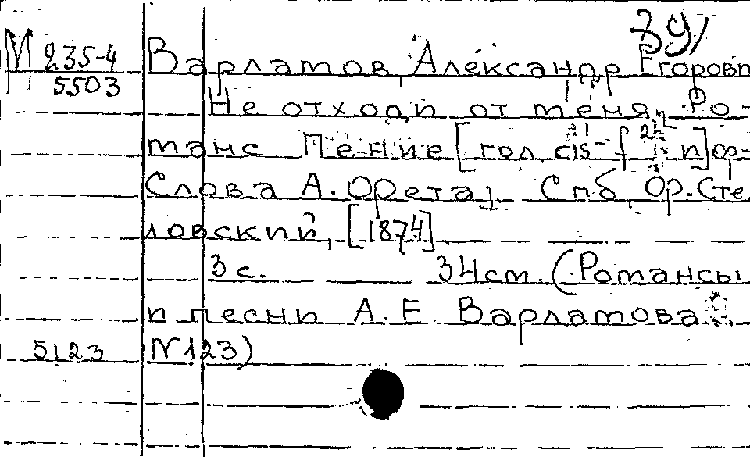 391
М 235-4 Варламов, Александр Егорови
5503
Не отходи от меня. Ро-
манс Пение [гол cis-f 2 и] ф-
Слова А. Фета. Спб, Ф. Сте
ловский, [1874]
3 с. 34 см. (Романсы
и песни А. Е. Варламова
5123 №123)